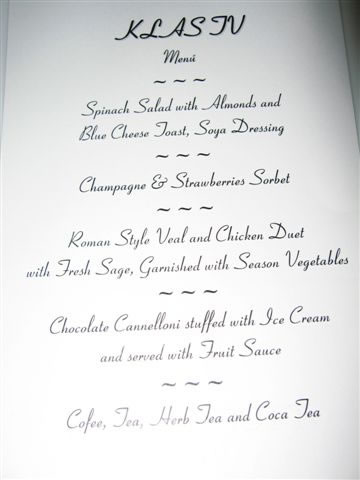 KLAS TV
Menú
~ ~ ~
Spinach Salad with Almonds and
Blue Cheese Toast, Soya Dressing
~ ~ ~
Champagne & Strawberries Sorbet
~ ~ ~
Roman Style Veal and Chicken Duet
with Fresh Sage, Garnished with Season Vegetables
~ ~ ~
Chocolate Cannelloni stuffed with Ice Cream
and served with Fruit Sauce
~ ~ ~
Cofee, Tea, Herb Tea and Coca Tea